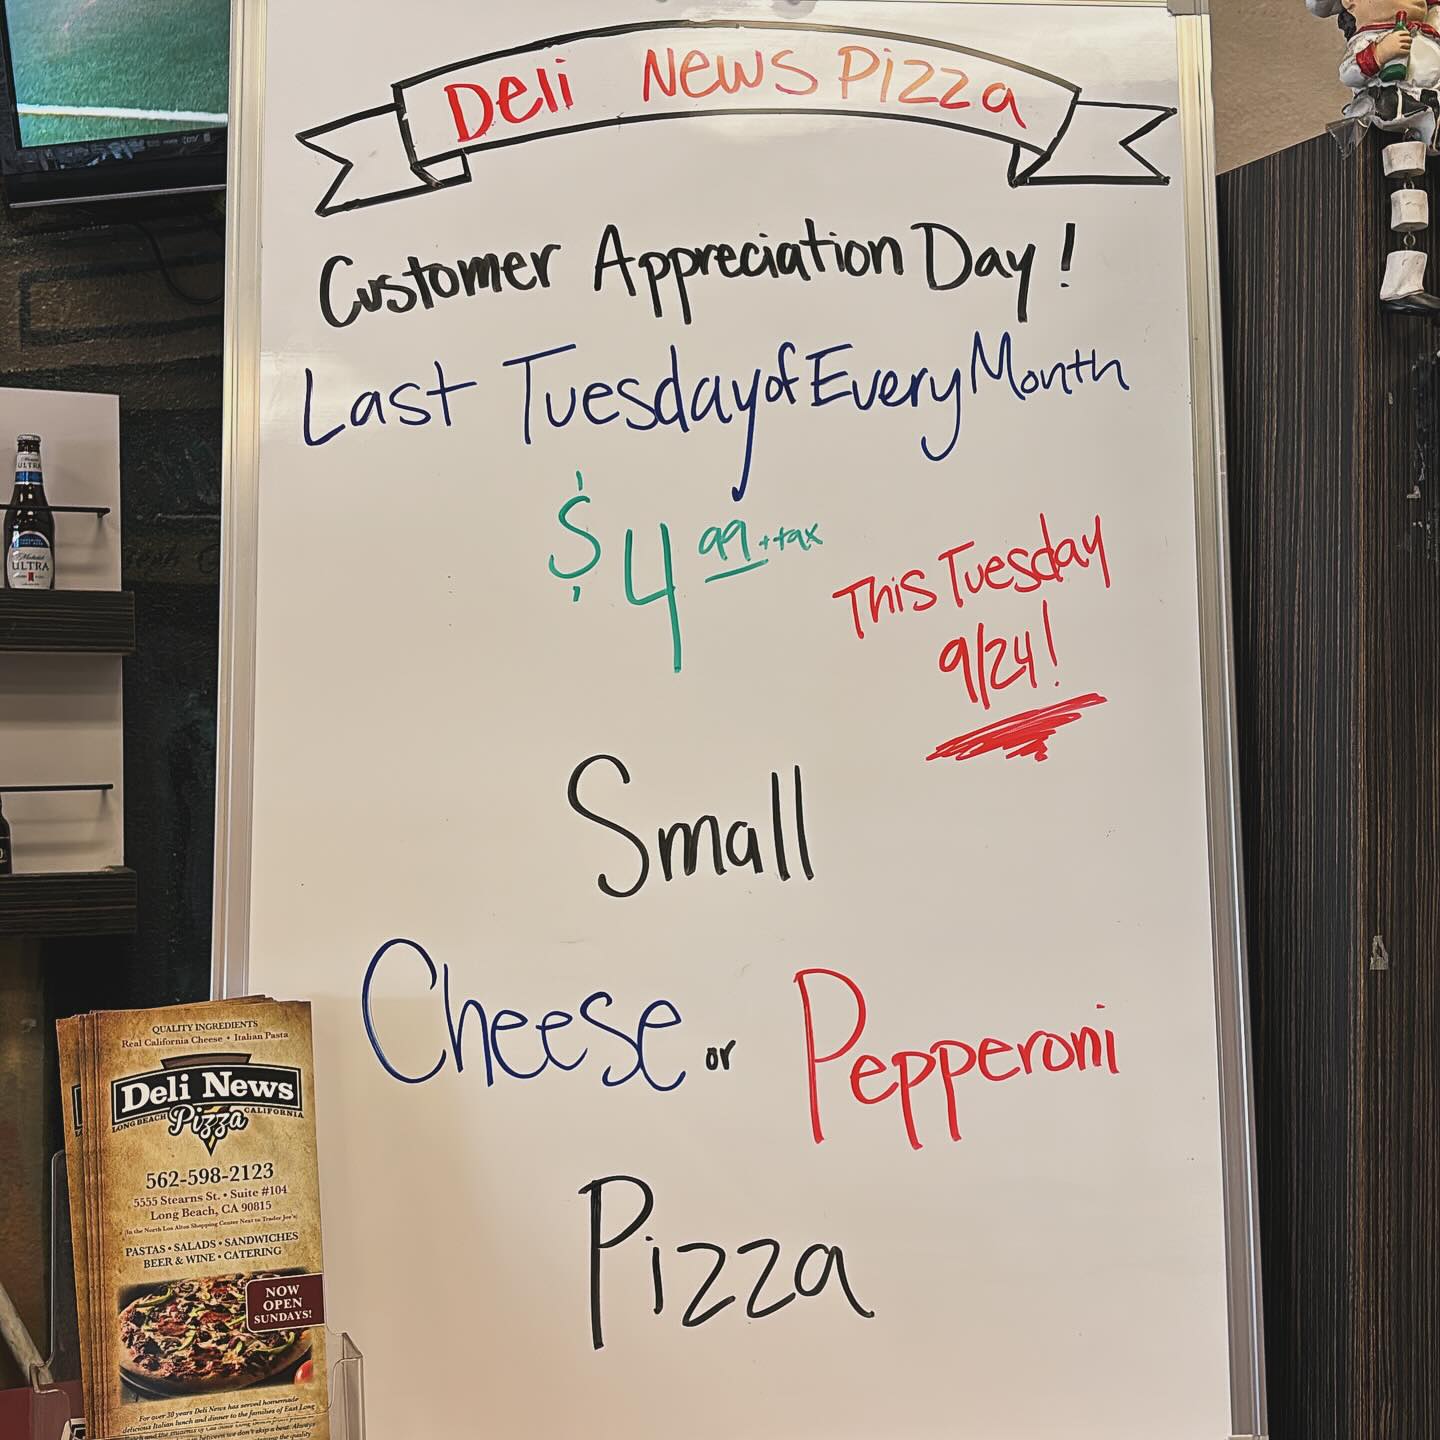 Deli News Pizza
Customer Appreciation Day!
Last Tuesday of Every Month
$4.99 + tax
This Tuesday
9/24!
Small
Cheese or Pepperoni
Pizza
ULTRA
ULTRA
QUALITY INGREDIENTS
Real California Cheese • Italian Pasta
Deli News
LONG BEACH Pizza CALIFORNIA
562-598-2123
5555 Stearns St. • Suite #104
Long Beach, CA 90815
(In the North Los Altos Shopping Center Next to Trader Joe's)
PASTAS • SALADS • SANDWICHES
BEER & WINE • CATERING
NOW
OPEN
SUNDAYS!
For over 30 years Deli News has served homemade
delicious Italian lunch and dinner to the families of East Long